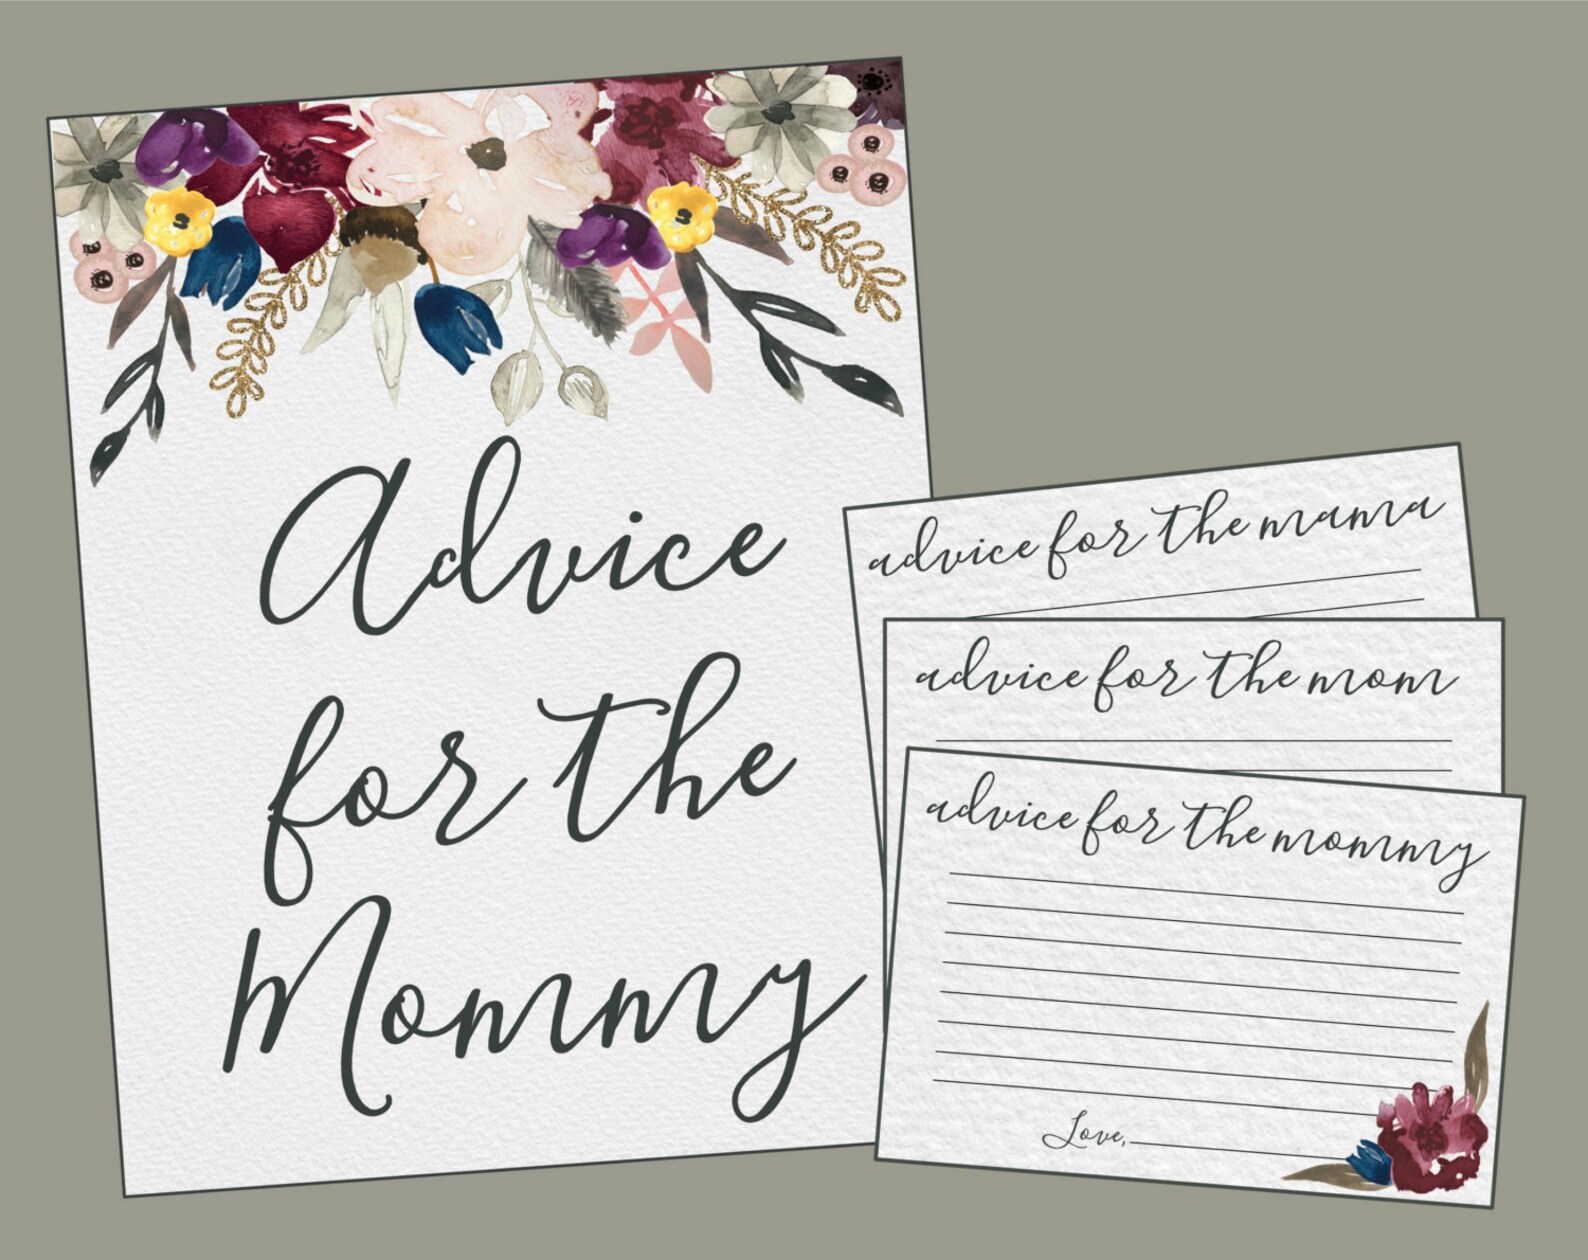 Advice
for the
Mommy
advice for the mama
advice for the mom
advice for the mommy
Love,